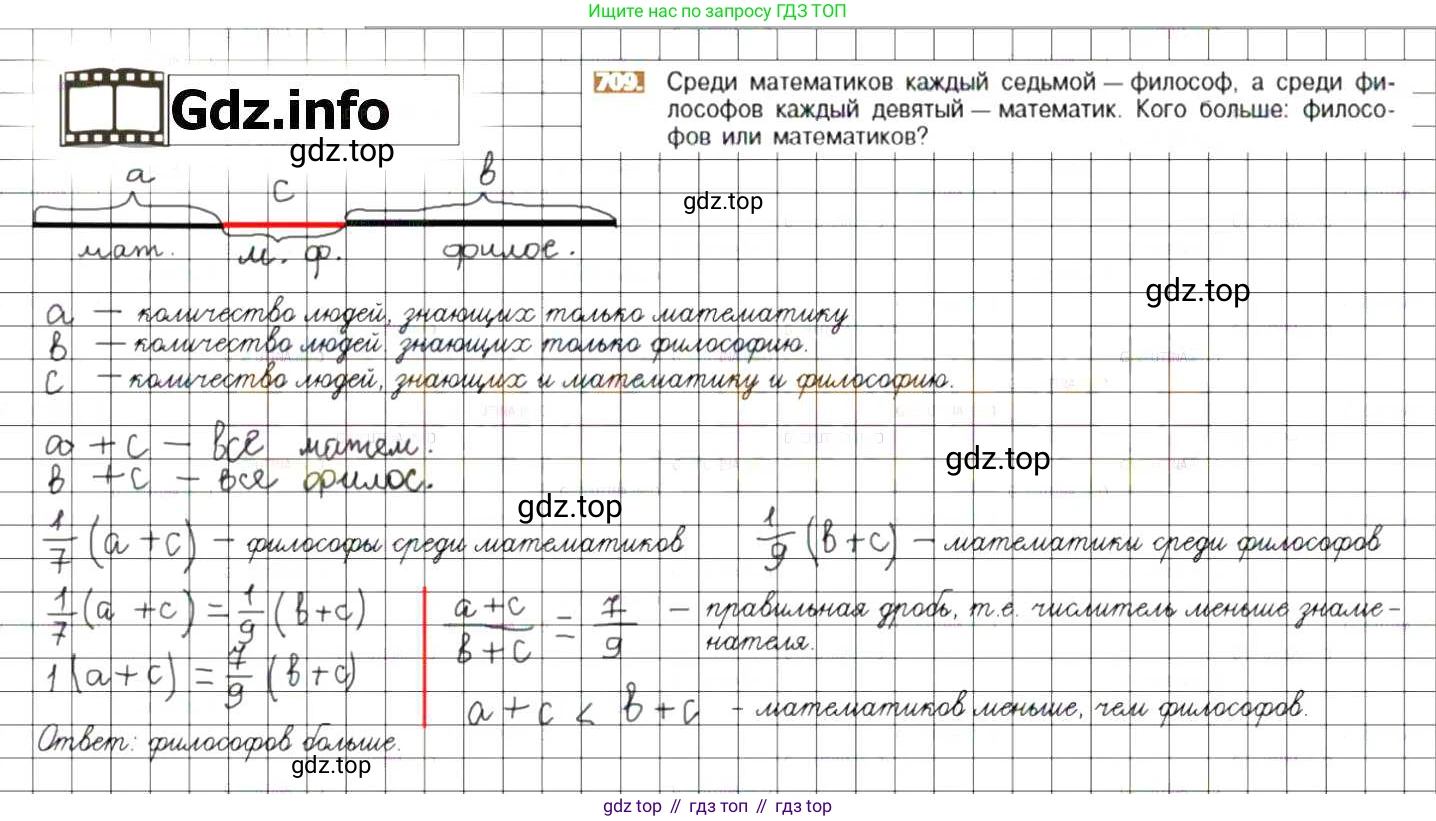 Ищите нас по запросу ГДЗ ТОП
Gdz.info
gdz.top
709. Среди математиков каждый седьмой — философ, а среди фи-
лософов каждый девятый — математик. Кого больше: филосо-
фов или математиков?
a
c
в
gdz.top
мат.
м. ф.
филос.
gdz.top
a — количество людей, знающих только математику
в — количество людей. знающих только философию.
c — количество людей, знающих и математику и философию.
a + c — все матем.
gdz.top
в + c — все филос.
gdz.top
1/7 (a + c) — философы среди математиков
1/9 (в + c) — математики среди философов
1/7 (a + c) = 1/9 (в + c)
(a + c)/(в + c) = 7/9 — правильная дробь, т.е. числитель меньше знаме-
нателя.
1 (a + c) = 7/9 (в + c)
a + c < в + c - математиков меньше, чем философов.
Ответ: философов больше.
gdz.top
gdz top // гдз топ // gdz top